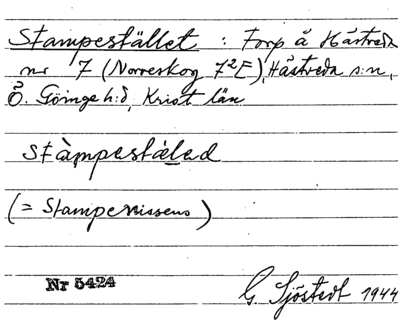 Stampestället : Torp å Hästveda
nr 7 (Norreskog 7²E), Hästveda s:n,
Ö. Göinge h:d, Krist län
stàmpestäled
(= Stampenissens)
Nr 5424
G. Sjöstedt 1944